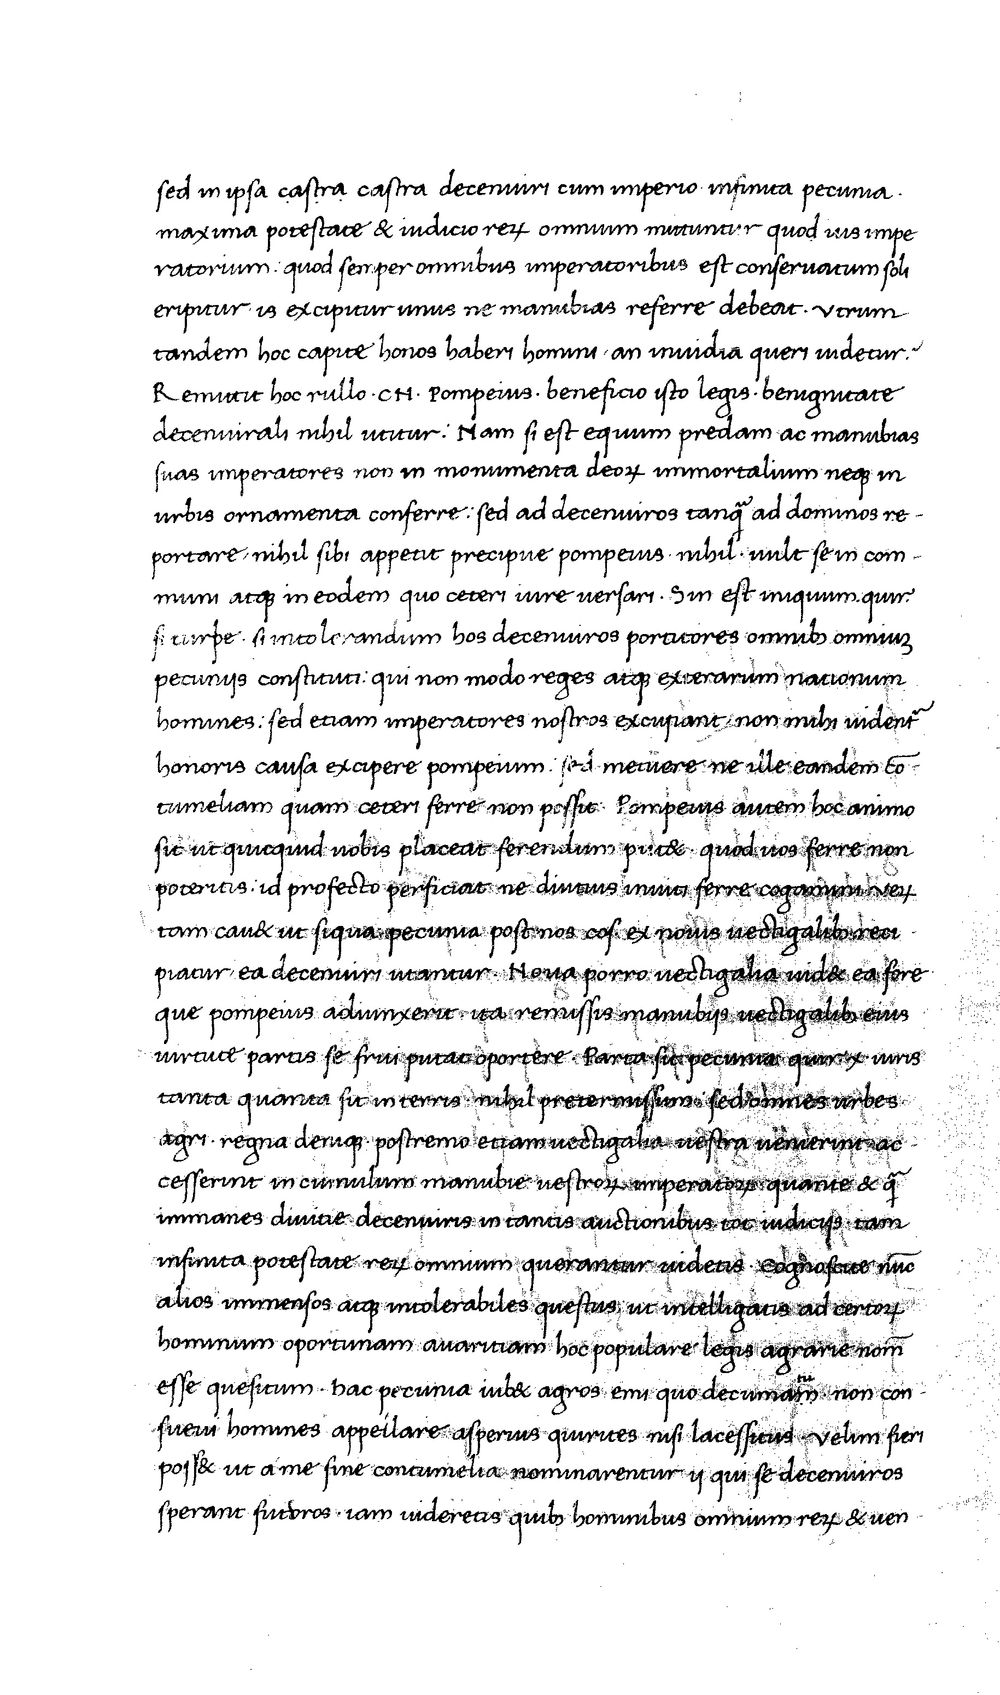 sed in ipsa castra castra decemuiri cum imperio infinita pecunia .
maxima potestate & iudicio reꝝ omnium mittuntur quod ius impe
ratorium : quod semper omnibus imperatoribus est conseruatum soli
eripitur is excipitur unus ne manubias referre debeat . Vtrum
tandem hoc capite honos haberi homini an inuidia queri uidetur .
Remittit hoc rullo . CN . Pompeius . beneficio isto legis . benignitate
decemuirali nihil utitur : Nam si est equum predam ac manubias
suas imperatores non in monumenta deoꝝ immortalium neqꝫ in
urbis ornamenta conferre : sed ad decemuiros tanq̃ ad dominos re -
portare , nihil sibi appetit precipue pompeius . nihil . uult se in com -
muni atqꝫ in eodem quo ceteri iure uersari . Sin est iniquum . quir .
si turpe . si intolerandum hos decemuiros portitores omnibꝫ omniuꝫ
pecunijs constitui : qui non modo reges atqꝫ exterarum nationum
homines : sed etiam imperatores nostros excutiant , non mihi uident᷑
honoris causa excipere pompeium . sed metuere ne ille eandem cō -
tumeliam quam ceteri ferre non possit . Pompeius autem hoc animo
sit ut quicquid uobis placeat ferendum put& . quod uos ferre non
poteritis : id profecto perficiat ne diutius inuiti ferre cogamini Veꝝ
tam cau& ut siqua pecunia post nos coſ . ex nouis uectigalibꝫ reci
piatur ea decemuiri utantur . Noua porro uectigalia uid& ea fore
que pompeius adiunxerit . ita remissis manubijs uectigalibꝫ eius
uirtute partis se frui putat oportere . Parta sit pecunia quir x uiris
tanta quanta sit in terris nihil pretermissum : sed omnes urbes
agri . regna deniqꝫ postremo etiam uectigalia uestra uenierint ac -
cesserint in cumulum manubie uestroꝝ imperatoꝝ . quante & q̃
immanes diuitie decemuiris in tantis auctionibus tot iudicijs tam
infinita potestate reꝝ omnium querantur uidetis . Cognoscite nūc
alios immensos atqꝫ intolerabiles questus ut intelligatis ad certoꝝ
hominum oportunam auaritiam hoc populare legis agrarie nom̄
esse quesitum . hac pecunia iub& agros emi quo decumamini non con -
sueui homines appellare asperius quirites nisi lacessitus . Velim fieri
poss& ut a me sine contumelia nominarentur ij qui se decemuiros
sperant futuros . iam uideretis quibꝫ hominibus omnium reꝝ & uen